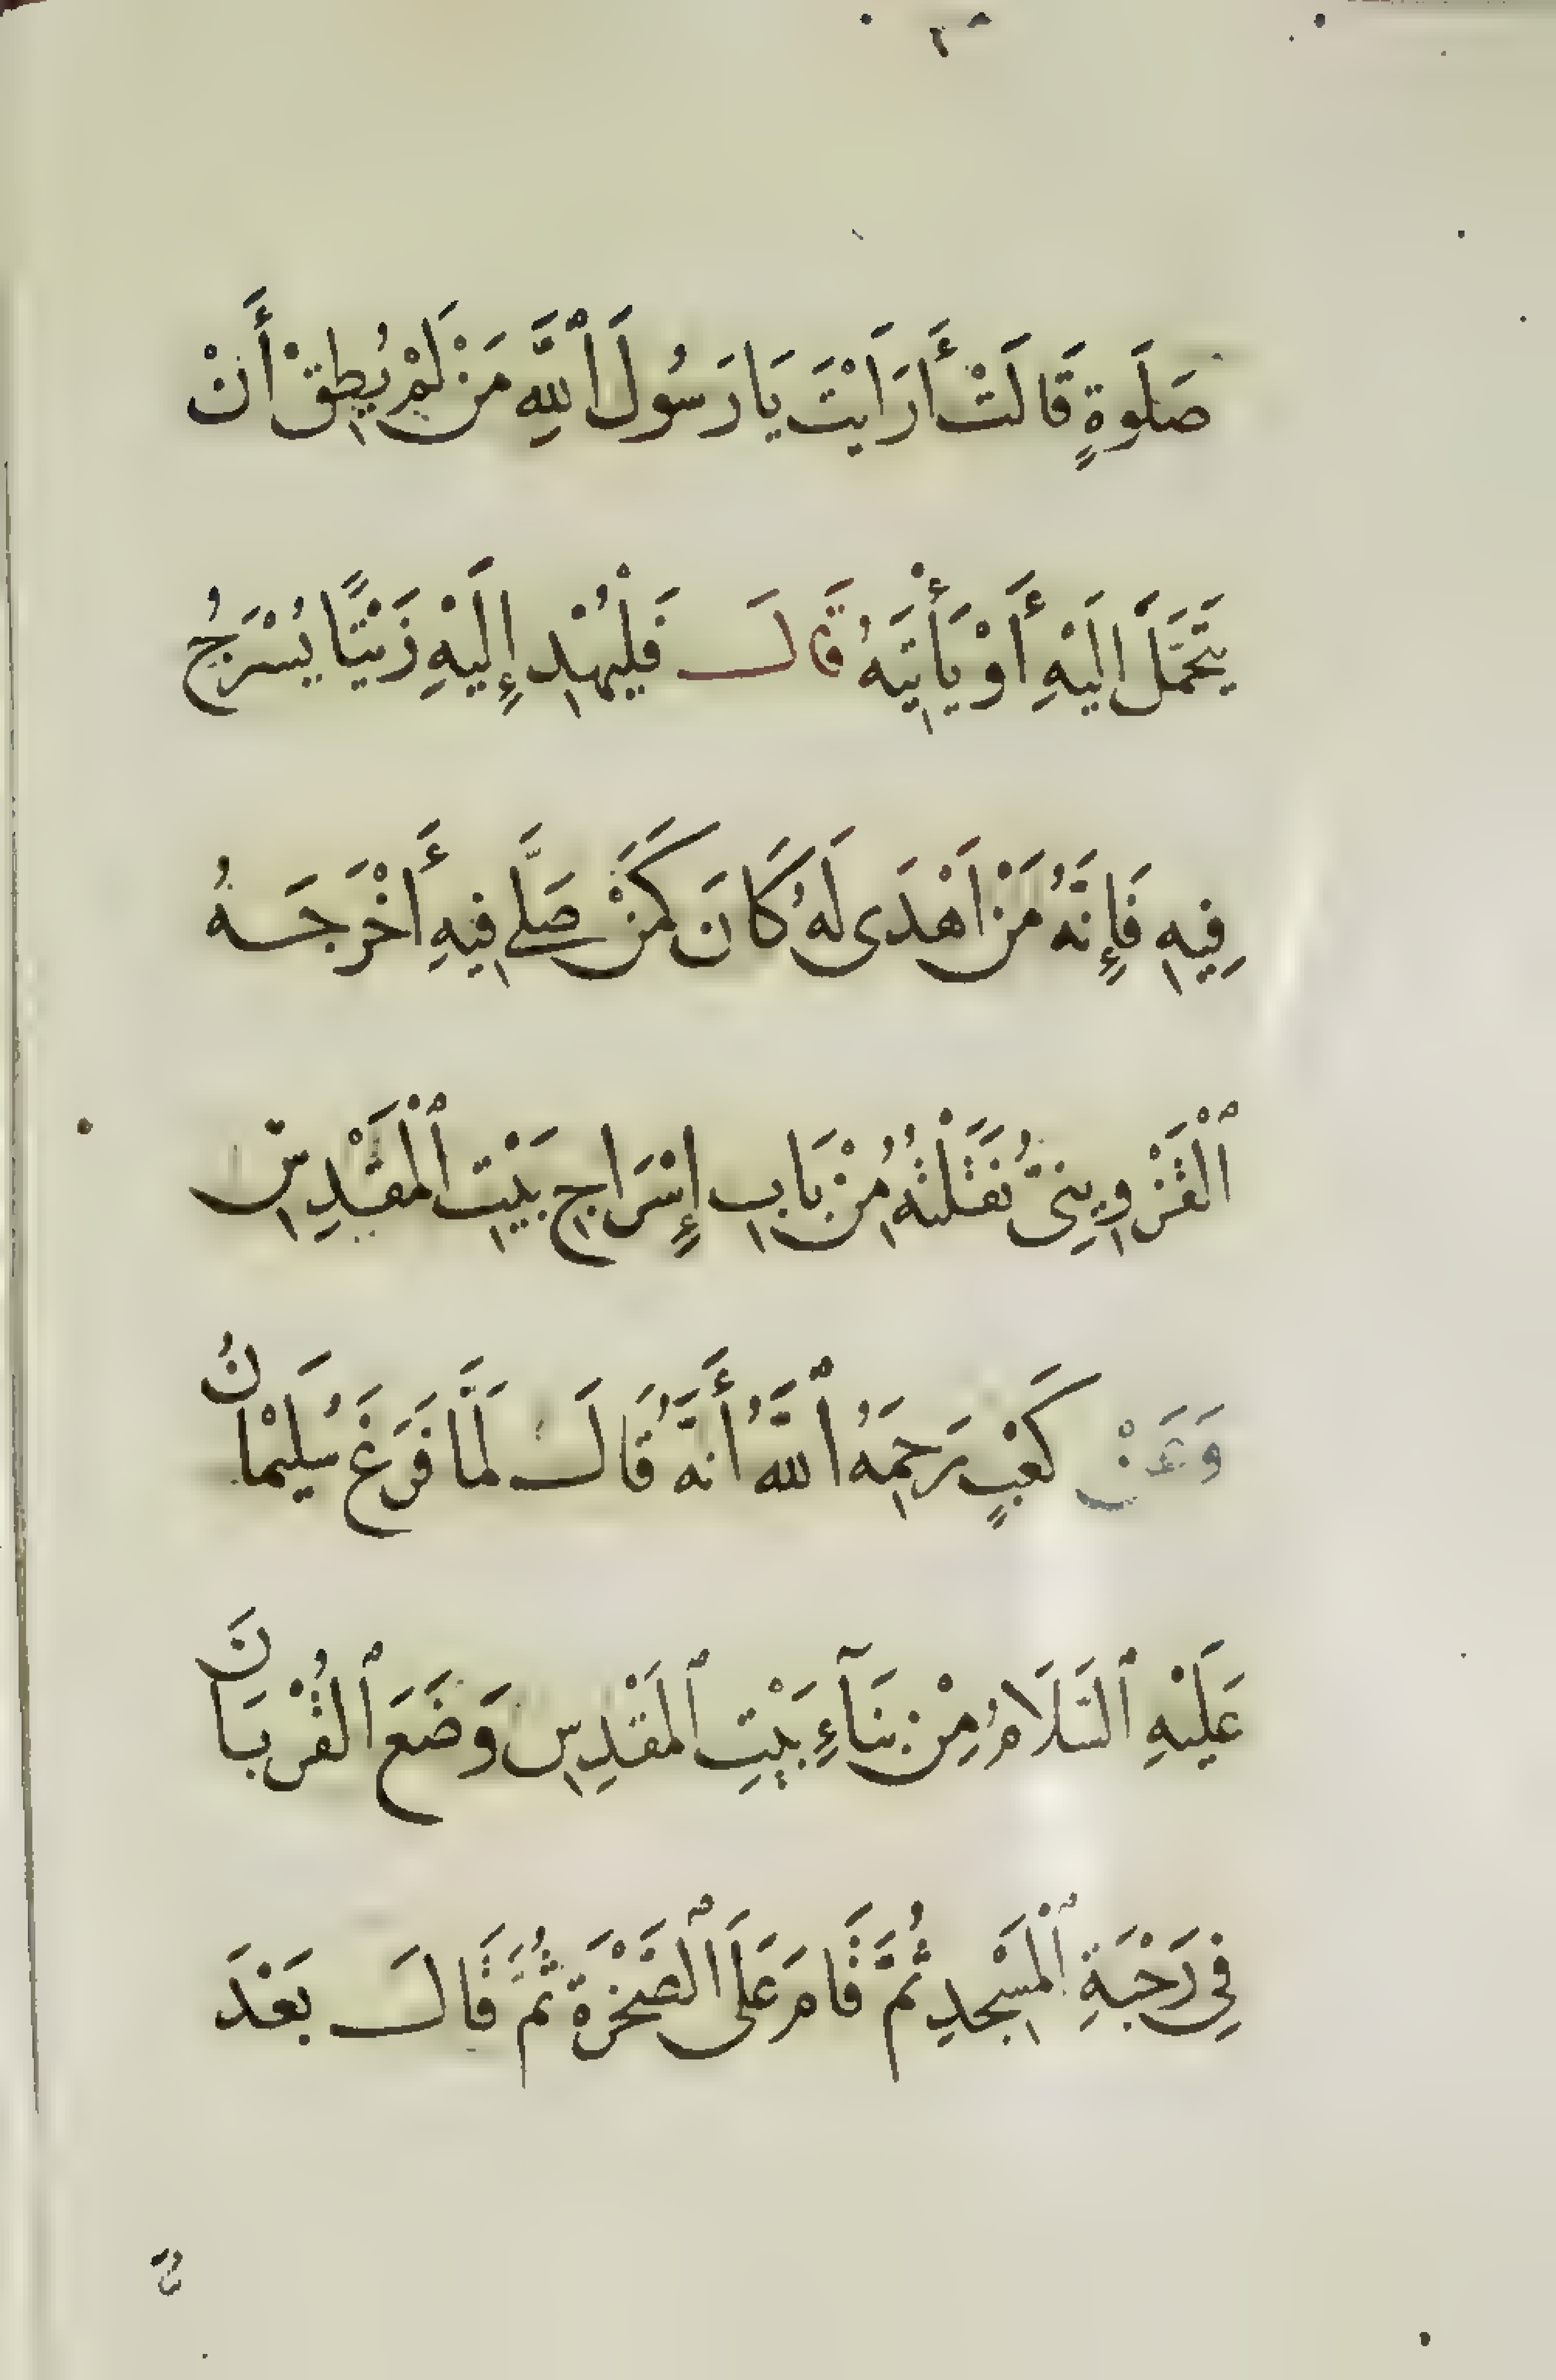 صَلَوةٍ قَالَتْ أَرَاَيْتَ يَا رَسُولَ ٱللَّهِ مَنْ لَمْ يُطِقْ أَنْ
يَتَحَمَّلَ اِلَيْهِ أَوْ يَأْتِيَهُ قَالَ فَلْيُهْدِ إِلَيْهِ زَيْتًا يُسْرَجُ
فِيهِ فَإِنَّهُ مَنْ اَهْدَى لَهُ كَانَ كَمَنْ صَلَّى فِيهِ أَخْرَجَهُ
ٱلْقَزْوِينِىُّ نَقَلْتُهُ مِنْ بَابِ إِسْرَاجِ بَيْتِ ٱلْمَقْدِسِ
وَعَنْ كَعْبٍ رَحِمَهُ ٱللَّهُ أَنَّهُ قَالَ لَمَّا فَرَغَ سُلَيْمَانُ
عَلَيْهِ ٱلسَّلَامُ مِنْ بِنَآءِ بَيْتِ ٱلْمَقْدِسِ وَضَعَ ٱلْقُرْبَانَ
فِي رَحْبَةِ ٱلْمَسْجِدِ ثُمَّ قَامَ عَلَى ٱلصَّخْرَةِ ثُمَّ قَالَ بَعْدَ